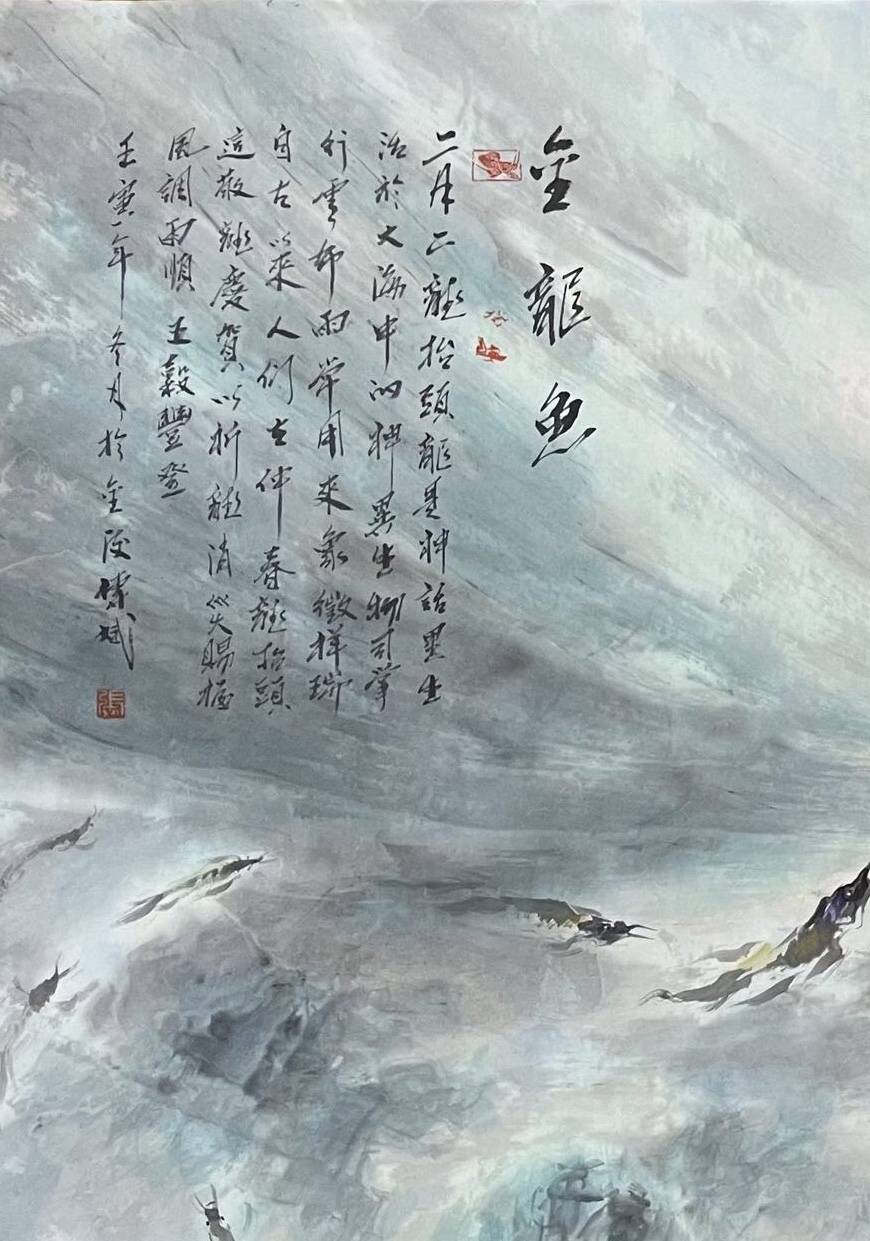 金龍魚
二月二龍抬頭龍是神話里生
活於大海中的神異生物司掌
行雲布雨常用來象徵祥瑞
自古以來人們在仲春龍抬頭
這敬龍慶賀以祈龍消災賜福
風調雨順五穀豐登
壬寅年冬月於金陵斌
張